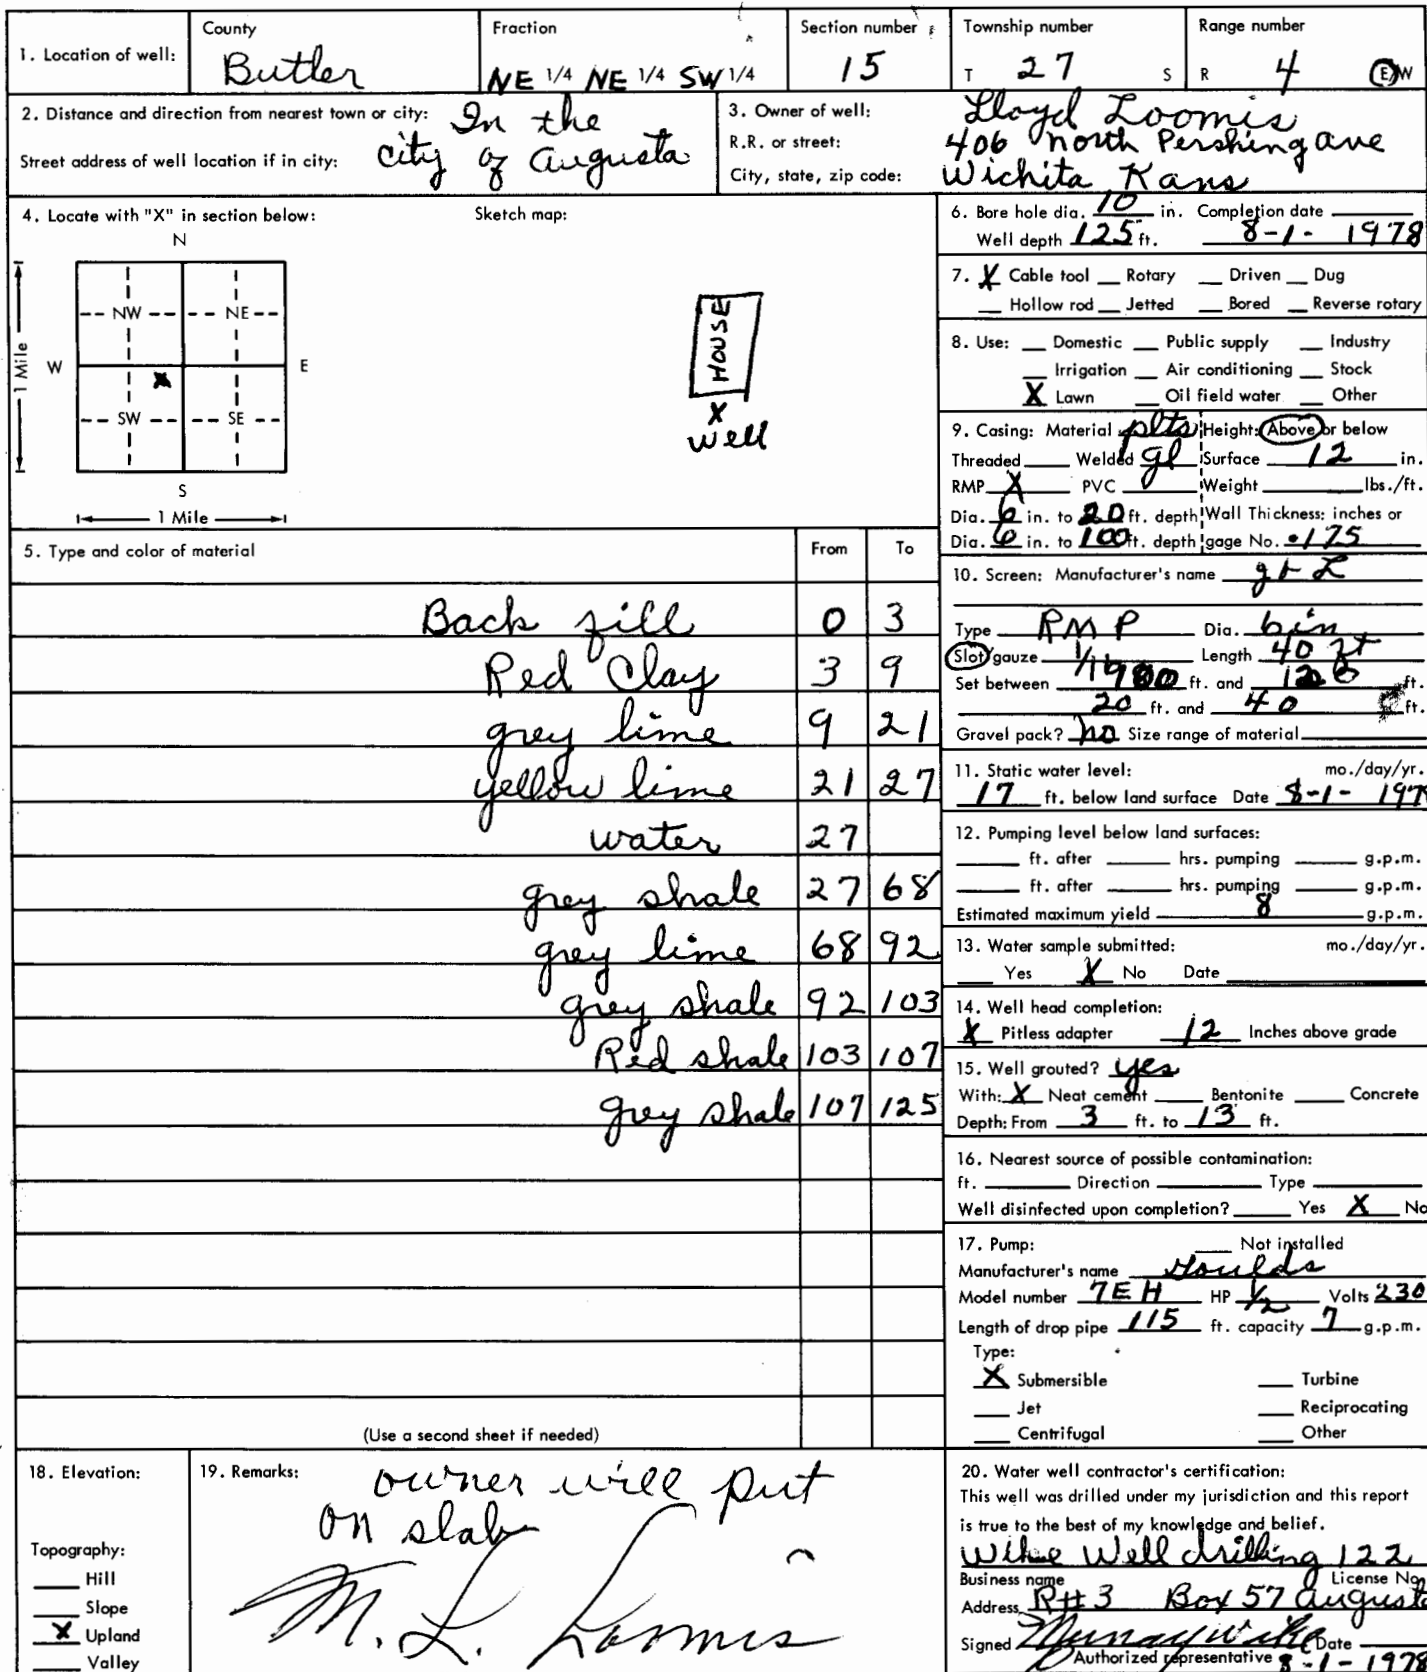 1. Location of well:
County
Butler
Fraction
NE 1/4 NE 1/4 SW 1/4
Section number
15
Township number
T 27 S
Range number
R 4 E/W
2. Distance and direction from nearest town or city: In the
Street address of well location if in city: city of Augusta
3. Owner of well: Lloyd Loomis
R.R. or street: 406 North Pershing Ave
City, state, zip code: Wichita, Kans
4. Locate with "X" in section below:
Sketch map:
N
NW NE
W E
X
SW SE
S
1 Mile
1 Mile
HOUSE
X
well
5. Type and color of material From To
Back fill 0 3
Red Clay 3 9
grey lime 9 21
yellow lime 21 27
water 27
grey shale 27 68
grey lime 68 92
grey shale 92 103
Red shale 103 107
grey shale 107 125
(Use a second sheet if needed)
6. Bore hole dia. 10 in. Completion date
Well depth 125 ft. 8-1- 1978
7. X Cable tool __ Rotary __ Driven __ Dug
__ Hollow rod __ Jetted __ Bored __ Reverse rotary
8. Use: __ Domestic __ Public supply __ Industry
__ Irrigation __ Air conditioning __ Stock
X Lawn __ Oil field water __ Other
9. Casing: Material plts Height: Above or below
Threaded __ Welded gl Surface 12 in.
RMP X PVC __ Weight __ lbs./ft.
Dia. 6 in. to 20 ft. depth Wall Thickness: inches or
Dia. 6 in. to 100 ft. depth gage No. .175
10. Screen: Manufacturer's name
Type RMP Dia. 6in
Slot/gauze Length 40 ft
Set between ft. and ft.
20 ft. and 40 ft.
Gravel pack? no Size range of material
11. Static water level: mo./day/yr.
17 ft. below land surface Date 8-1- 1978
12. Pumping level below land surfaces:
__ ft. after __ hrs. pumping __ g.p.m.
__ ft. after __ hrs. pumping __ g.p.m.
Estimated maximum yield 8 g.p.m.
13. Water sample submitted: mo./day/yr.
__ Yes X No Date
14. Well head completion:
X Pitless adapter 12 Inches above grade
15. Well grouted? yes
With: X Neat cement __ Bentonite __ Concrete
Depth: From 3 ft. to 13 ft.
16. Nearest source of possible contamination:
ft. __ Direction __ Type __
Well disinfected upon completion? __ Yes X No
17. Pump: __ Not installed
Manufacturer's name Goulds
Model number 7EH HP 1/2 Volts 230
Length of drop pipe 115 ft. capacity 7 g.p.m.
Type:
X Submersible __ Turbine
__ Jet __ Reciprocating
__ Centrifugal __ Other
18. Elevation:
Topography:
__ Hill
__ Slope
X Upland
__ Valley
19. Remarks: owner will put
on slab
M. L. Loomis
20. Water well contractor's certification:
This well was drilled under my jurisdiction and this report
is true to the best of my knowledge and belief.
Wike Well drilling 122
Business name License No.
Address R#3 Box 57 Augusta
Signed Murray Wike Date
Authorized representative 8-1-1978